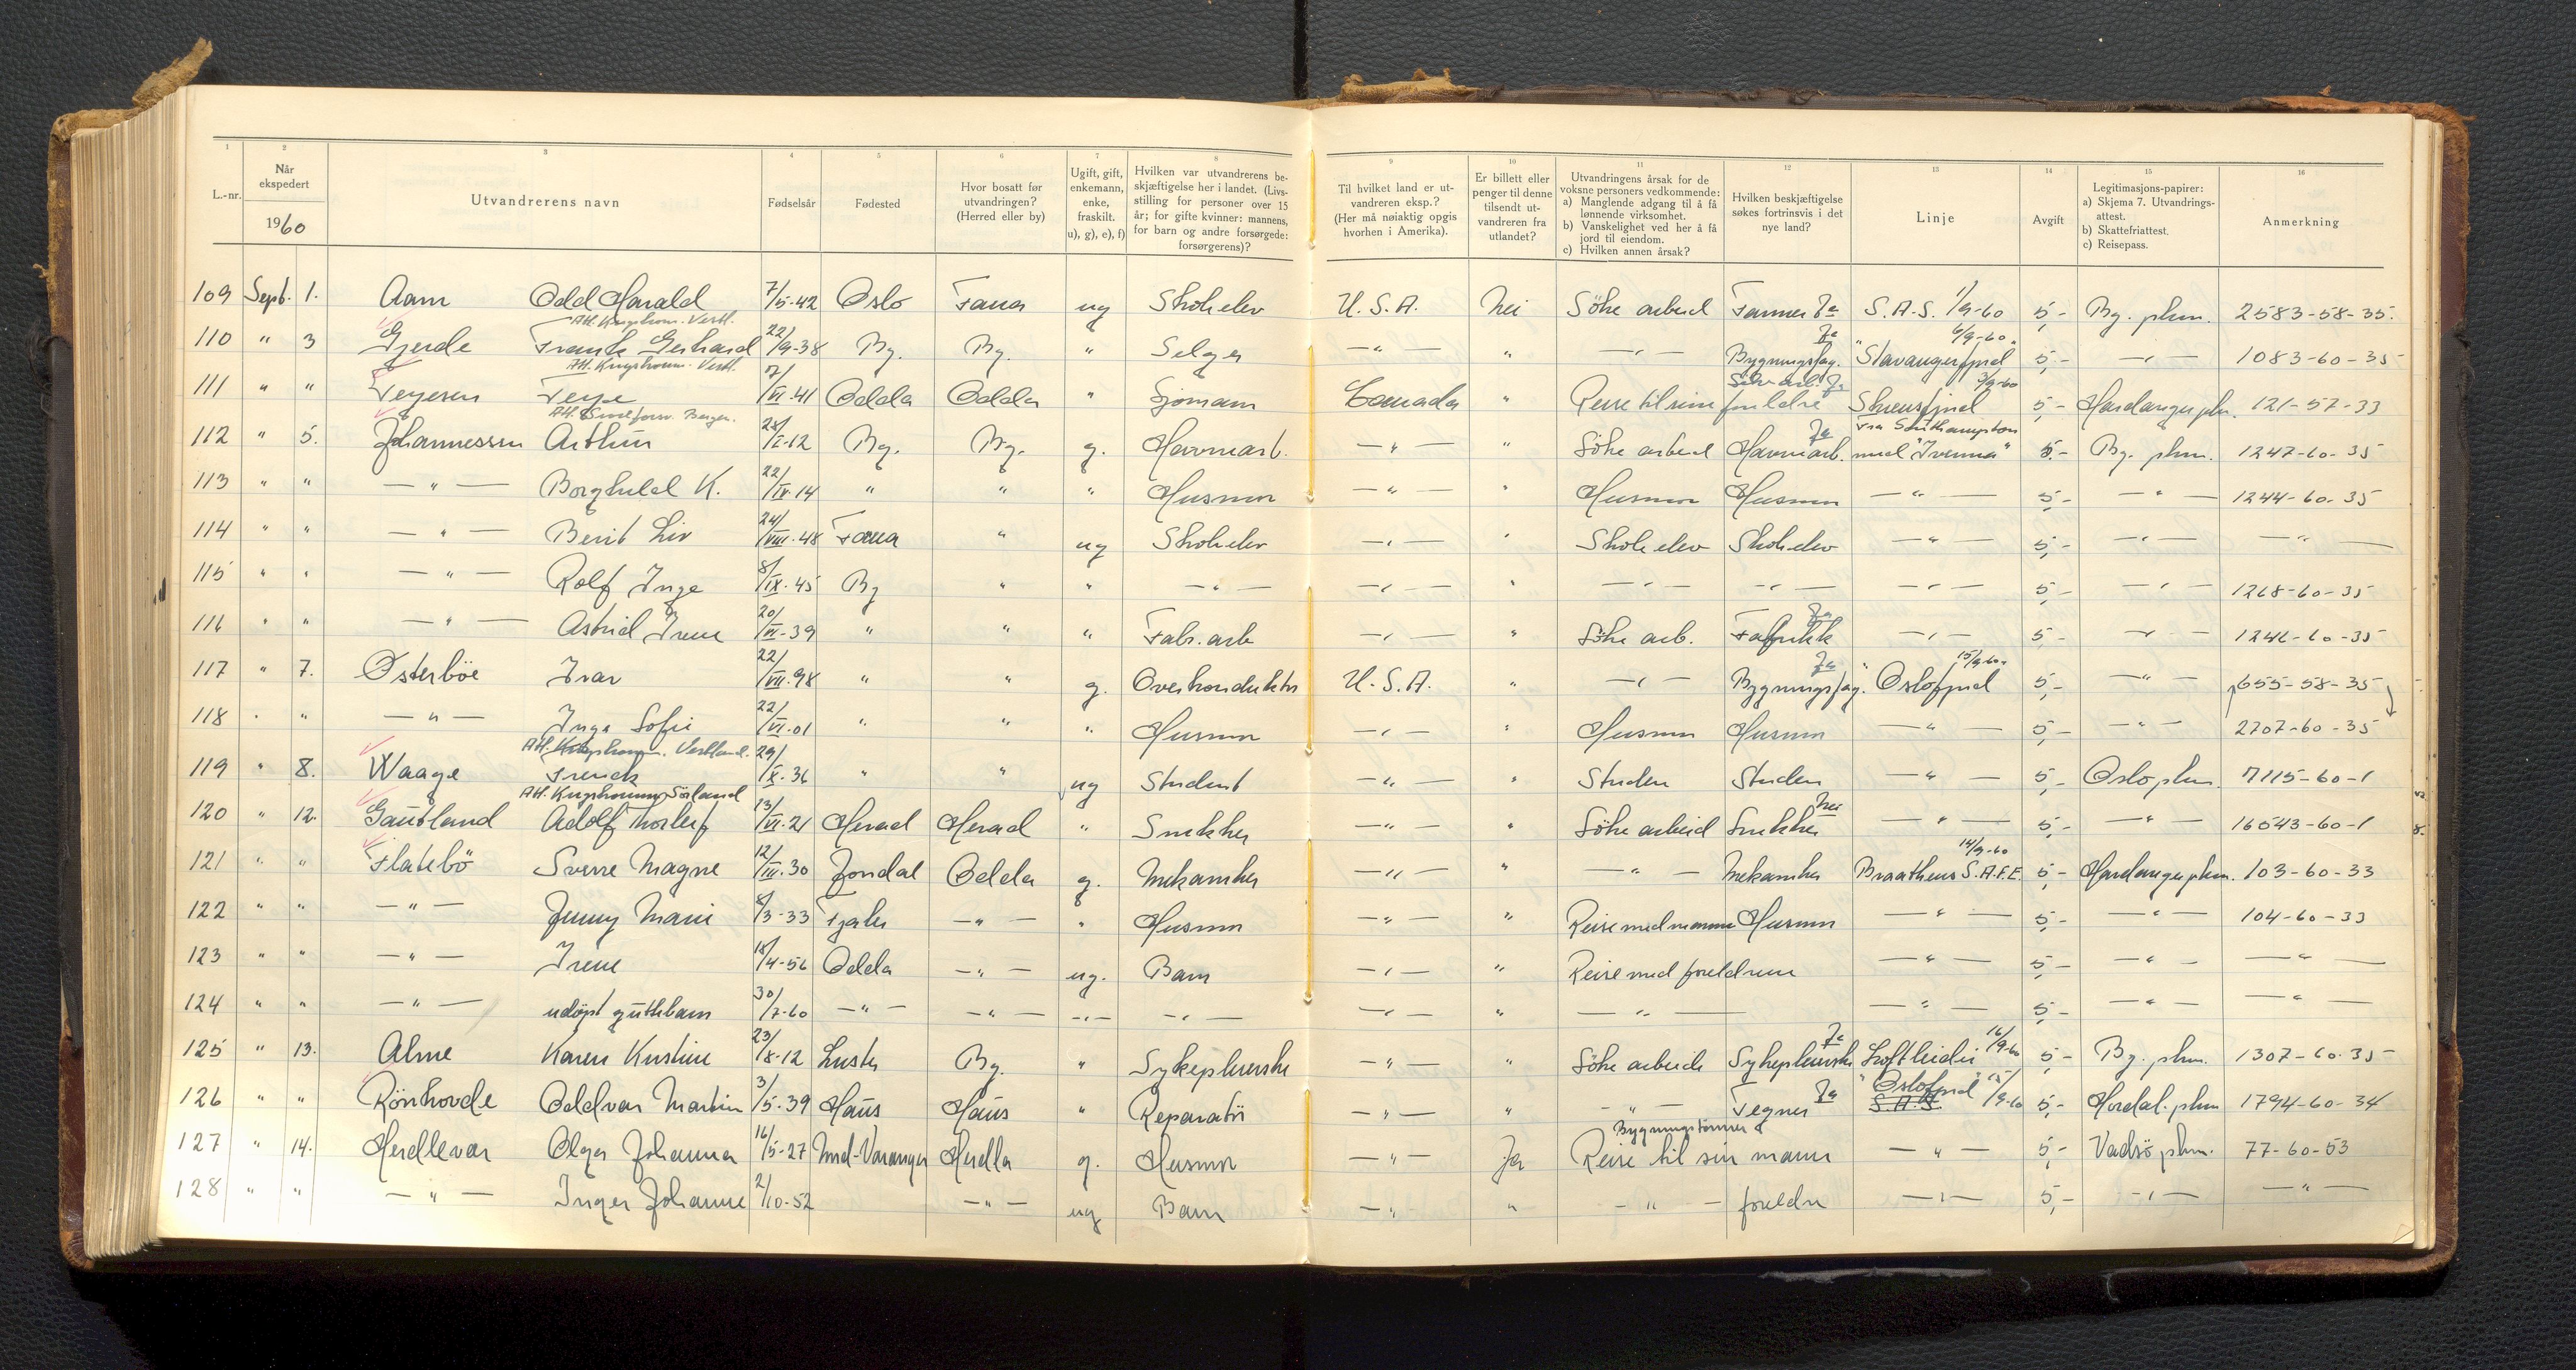 1 2 3 4 5 6 7 8 9 10 11 12 13 14 15 16
L.-nr. Når ekspedert 1960 Utvandrerens navn Fødselsår Fødested Hvor bosatt før utvandringen? (Herred eller by) Ugift, gift, enkemann, enke, fraskilt. u), g), e), f) Hvilken var utvandrerens beskjæftigelse her i landet. (Livsstilling for personer over 15 år; for gifte kvinner: mannens, for barn og andre forsørgede: forsørgerens)? Til hvilket land er utvandreren eksp.? (Her må nøiaktig opgis hvorhen i Amerika). Er billett eller penger til denne tilsendt utvandreren fra utlandet? Utvandringens årsak for de voksne personers vedkommende: a) Manglende adgang til å få lønnende virksomhet. b) Vanskelighet ved her å få jord til eiendom. c) Hvilken annen årsak? Hvilken beskjæftigelse søkes fortrinsvis i det nye land? Linje Avgift Legitimasjons-papirer: a) Skjema 7. Utvandringsattest. b) Skattefriattest. c) Reisepass. Anmerkning
109 Sept. 1. Aam Odd Harald 7/5-42 Oslo Fana ug Skoleelev U.S.A. Nei Söke arbeid Farmer Ja S.A.S. 1/9-60 5,- Bg. pkm. 2583-58-35.
110 " 3 Gjerde Frank Gerhard 22/9-38 Bg. Bg. " Selger -"- " -"- Bygningsfag. Ja "Stavangerfjord 6/9-60. 5,- -"- 1083-60-35
111 " " Odda Odda " Sjømann Canada " Reise til sine foreldre Ja Skiensfjord 3/9-60 5,- Hardanger pkm. 121-57-33
112 " 5. Johannessen Arthur Bg. Bg. g. Havnearb. -"- " Söke arbeid Havnearb. Ja via Southampton med "Ivernia" 5,- Bg. pkm. 1247-60-35
113 " " -"- Borghild K. 22/IV-14 " " " Husmor -"- " Husmor Husmor -"- 5,- -"- 1244-60-35
114 " " -"- Berit Liv 24/VIII-48 Fana " ug Skoleelev -"- " Skoleelev Skoleelev -"- 5,- -"- -"-
115 " " -"- Rolf Inge 8/IX-45 Bg " " -"- -"- " -"- -"- -"- 5,- -"- 1268-60-35
116 " " -"- Astrid Irene 20/VI-39 " " " Fabr. arb -"- " Söke arb. Fabrikk Ja -"- 5,- -"- 1246-60-35
117 " 7. Østerbøe Ivar 22/VII-98 " " g. Overkonduktør U.S.A. " -"- Bygningsfag. Ja "Oslofjord 15/9-60. 5,- -"- 655-58-35
118 " " -"- Inga Sofie 22/VI-01 " " " Husmor -"- Husmor Husmor -"- 5,- -"- 2707-60-35
119 " 8. Waage 29/X-36 " " ug Student -"- " Studen Studen -"- 5,- Oslo pkm. 7115-60-1
120 " 12. Gautland Adolf Thorleif 13/VI-21 Herad Herad " Snekker -"- " Söke arbeid Snekker Nei -"- 5,- -"- 16543-60-1
121 " " Flatebö Sverre Magne 12/III-30 Jondal Odda g. Mekaniker -"- " -"- Mekaniker Braathens S.A.F.E. 14/9-60 5,- Hardanger pkm. 103-60-33
122 " " -"- Jenny Marie 8/3-33 Fjaler -"- " Husmor -"- " Reise med mannen Husmor -"- 5,- -"- 104-60-33
123 " " -"- Irene 18/4-56 Odda -"- ug. Barn -"- " Reise med foreldrene -"- 5,- -"- -"-
124 " " -"- udöpt guttebarn 30/7-60 -"- -"- -"- -"- -"- " -"- -"- 5,- -"- -"-
125 " 13. Alme Karen Kristine 23/8-12 Luster Bg. " Sykepleierske -"- " Söke arbeide Sykepleierske Ja Loftleidir 16/9-60 5,- Bg. pkm. 1307-60-35
126 " " Rönhovde Oddvar Martin 3/5-39 Haus Haus " Reparatör -"- " -"- Tegner Ja "Oslofjord" S.A.S. 15/9-60 5,- Hordal. pkm 1794-60-34
Bygningstömrer
127 " 14. Herdlevær Olga Johanna 16/5-27 Herdla g. Husmor -"- Ja Reise til sin mann -"- 5,- Vadsö pkm. 77-60-53
128 " " -"- Inger Johanne 2/10-52 -"- ug Barn -"- " -"- foreldre -"- 5,- -"- -"-